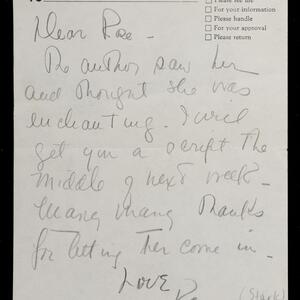 Please see me
For your information
Please handle
For your approval
Please return
Dear Rose -
The author saw her
and thought she was
enchanting. I will
get you a script the
middle of next week -
Many many thanks
for letting her come in -
Love
(Stark)